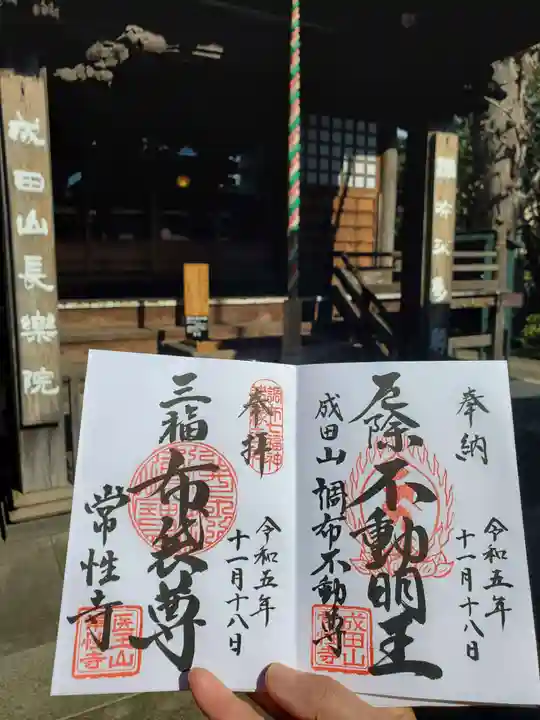 成田山長樂院
奉納
厄除不動明王
令和五年
十一月十八日
成田山 調布不動尊
成田山
奉拝
三福
布袋尊
令和五年
十一月十八日
常性寺
医王山
常性寺